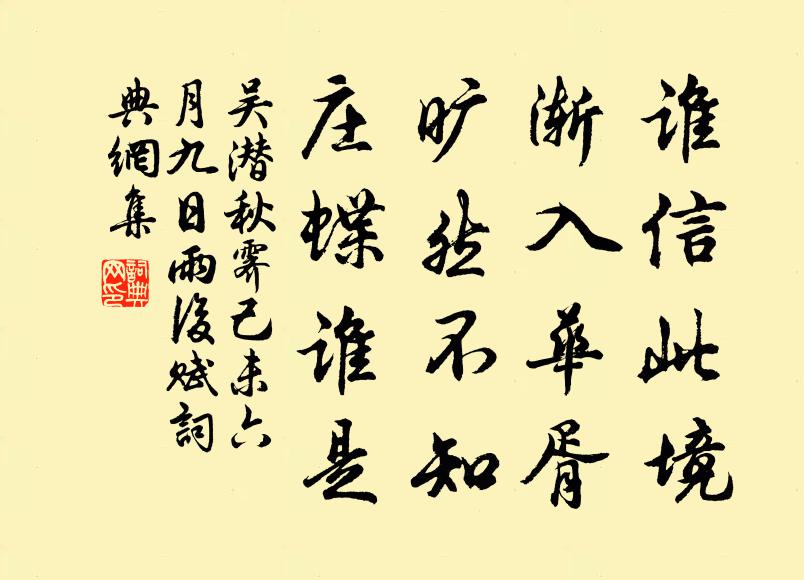 谁信此境
渐入华胥
旷然不知
庄蝶谁是
吴潜秋霁己未六
月九日雨後赋詞
典網集
詞典
网印